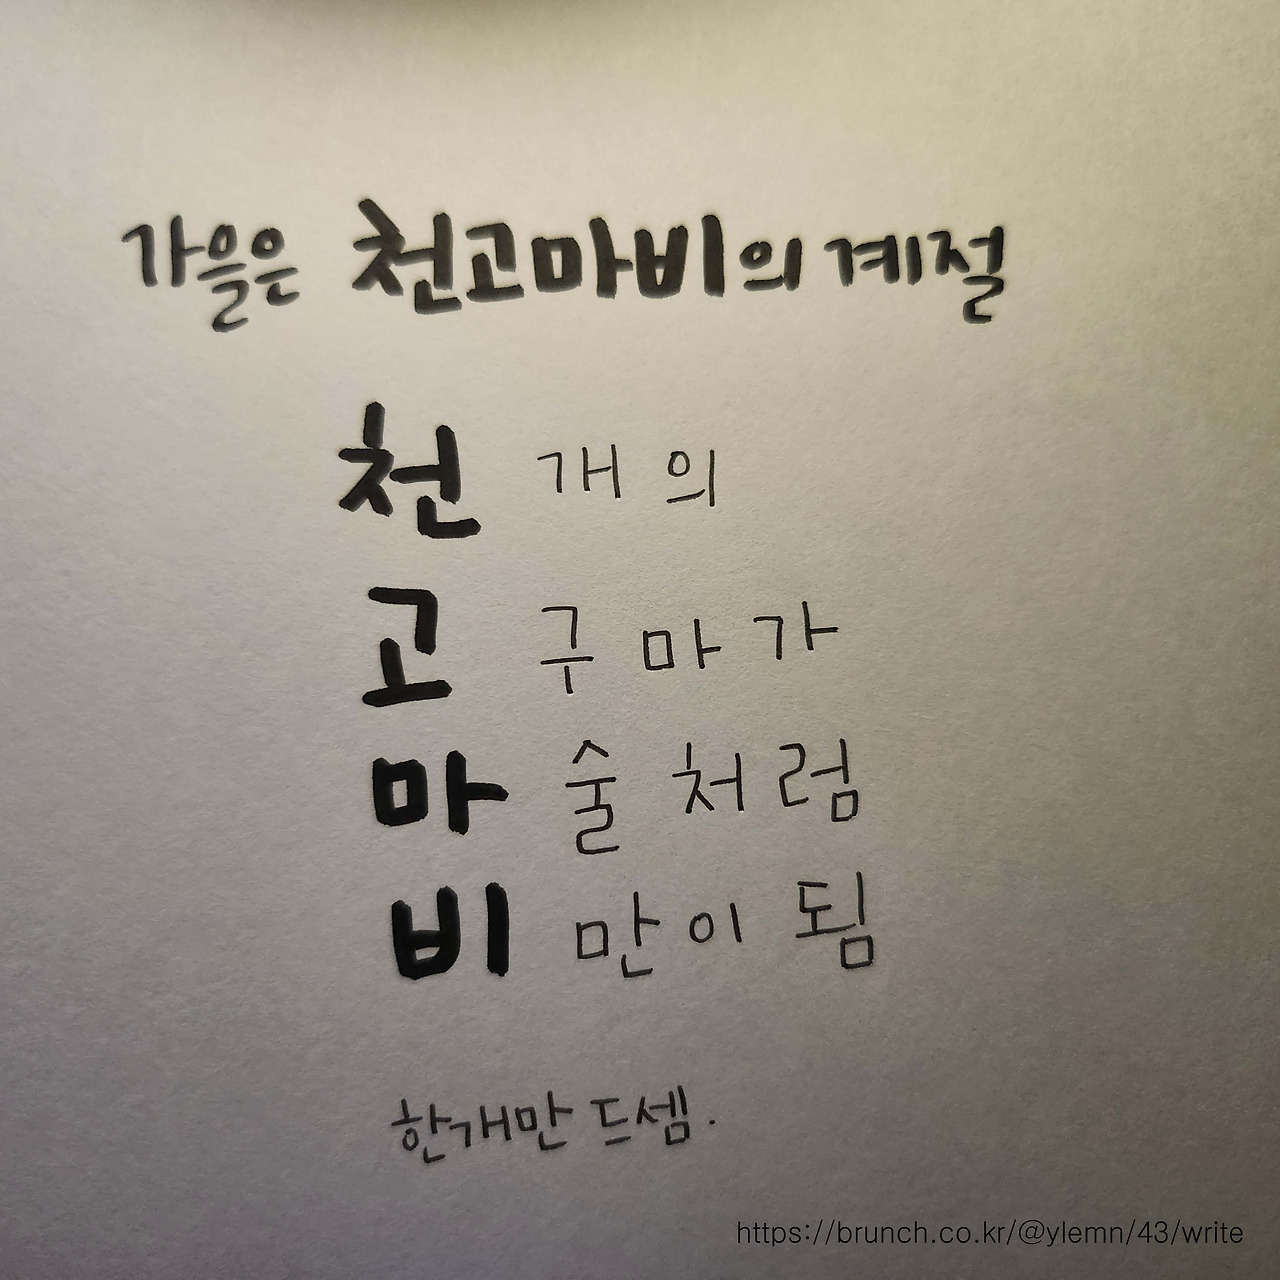 가을은 천고마비의 계절
천 개의
고 구마가
마 술처럼
비 만이 됨
한개만 드셈.
https://brunch.co.kr/@ylemn/43/write